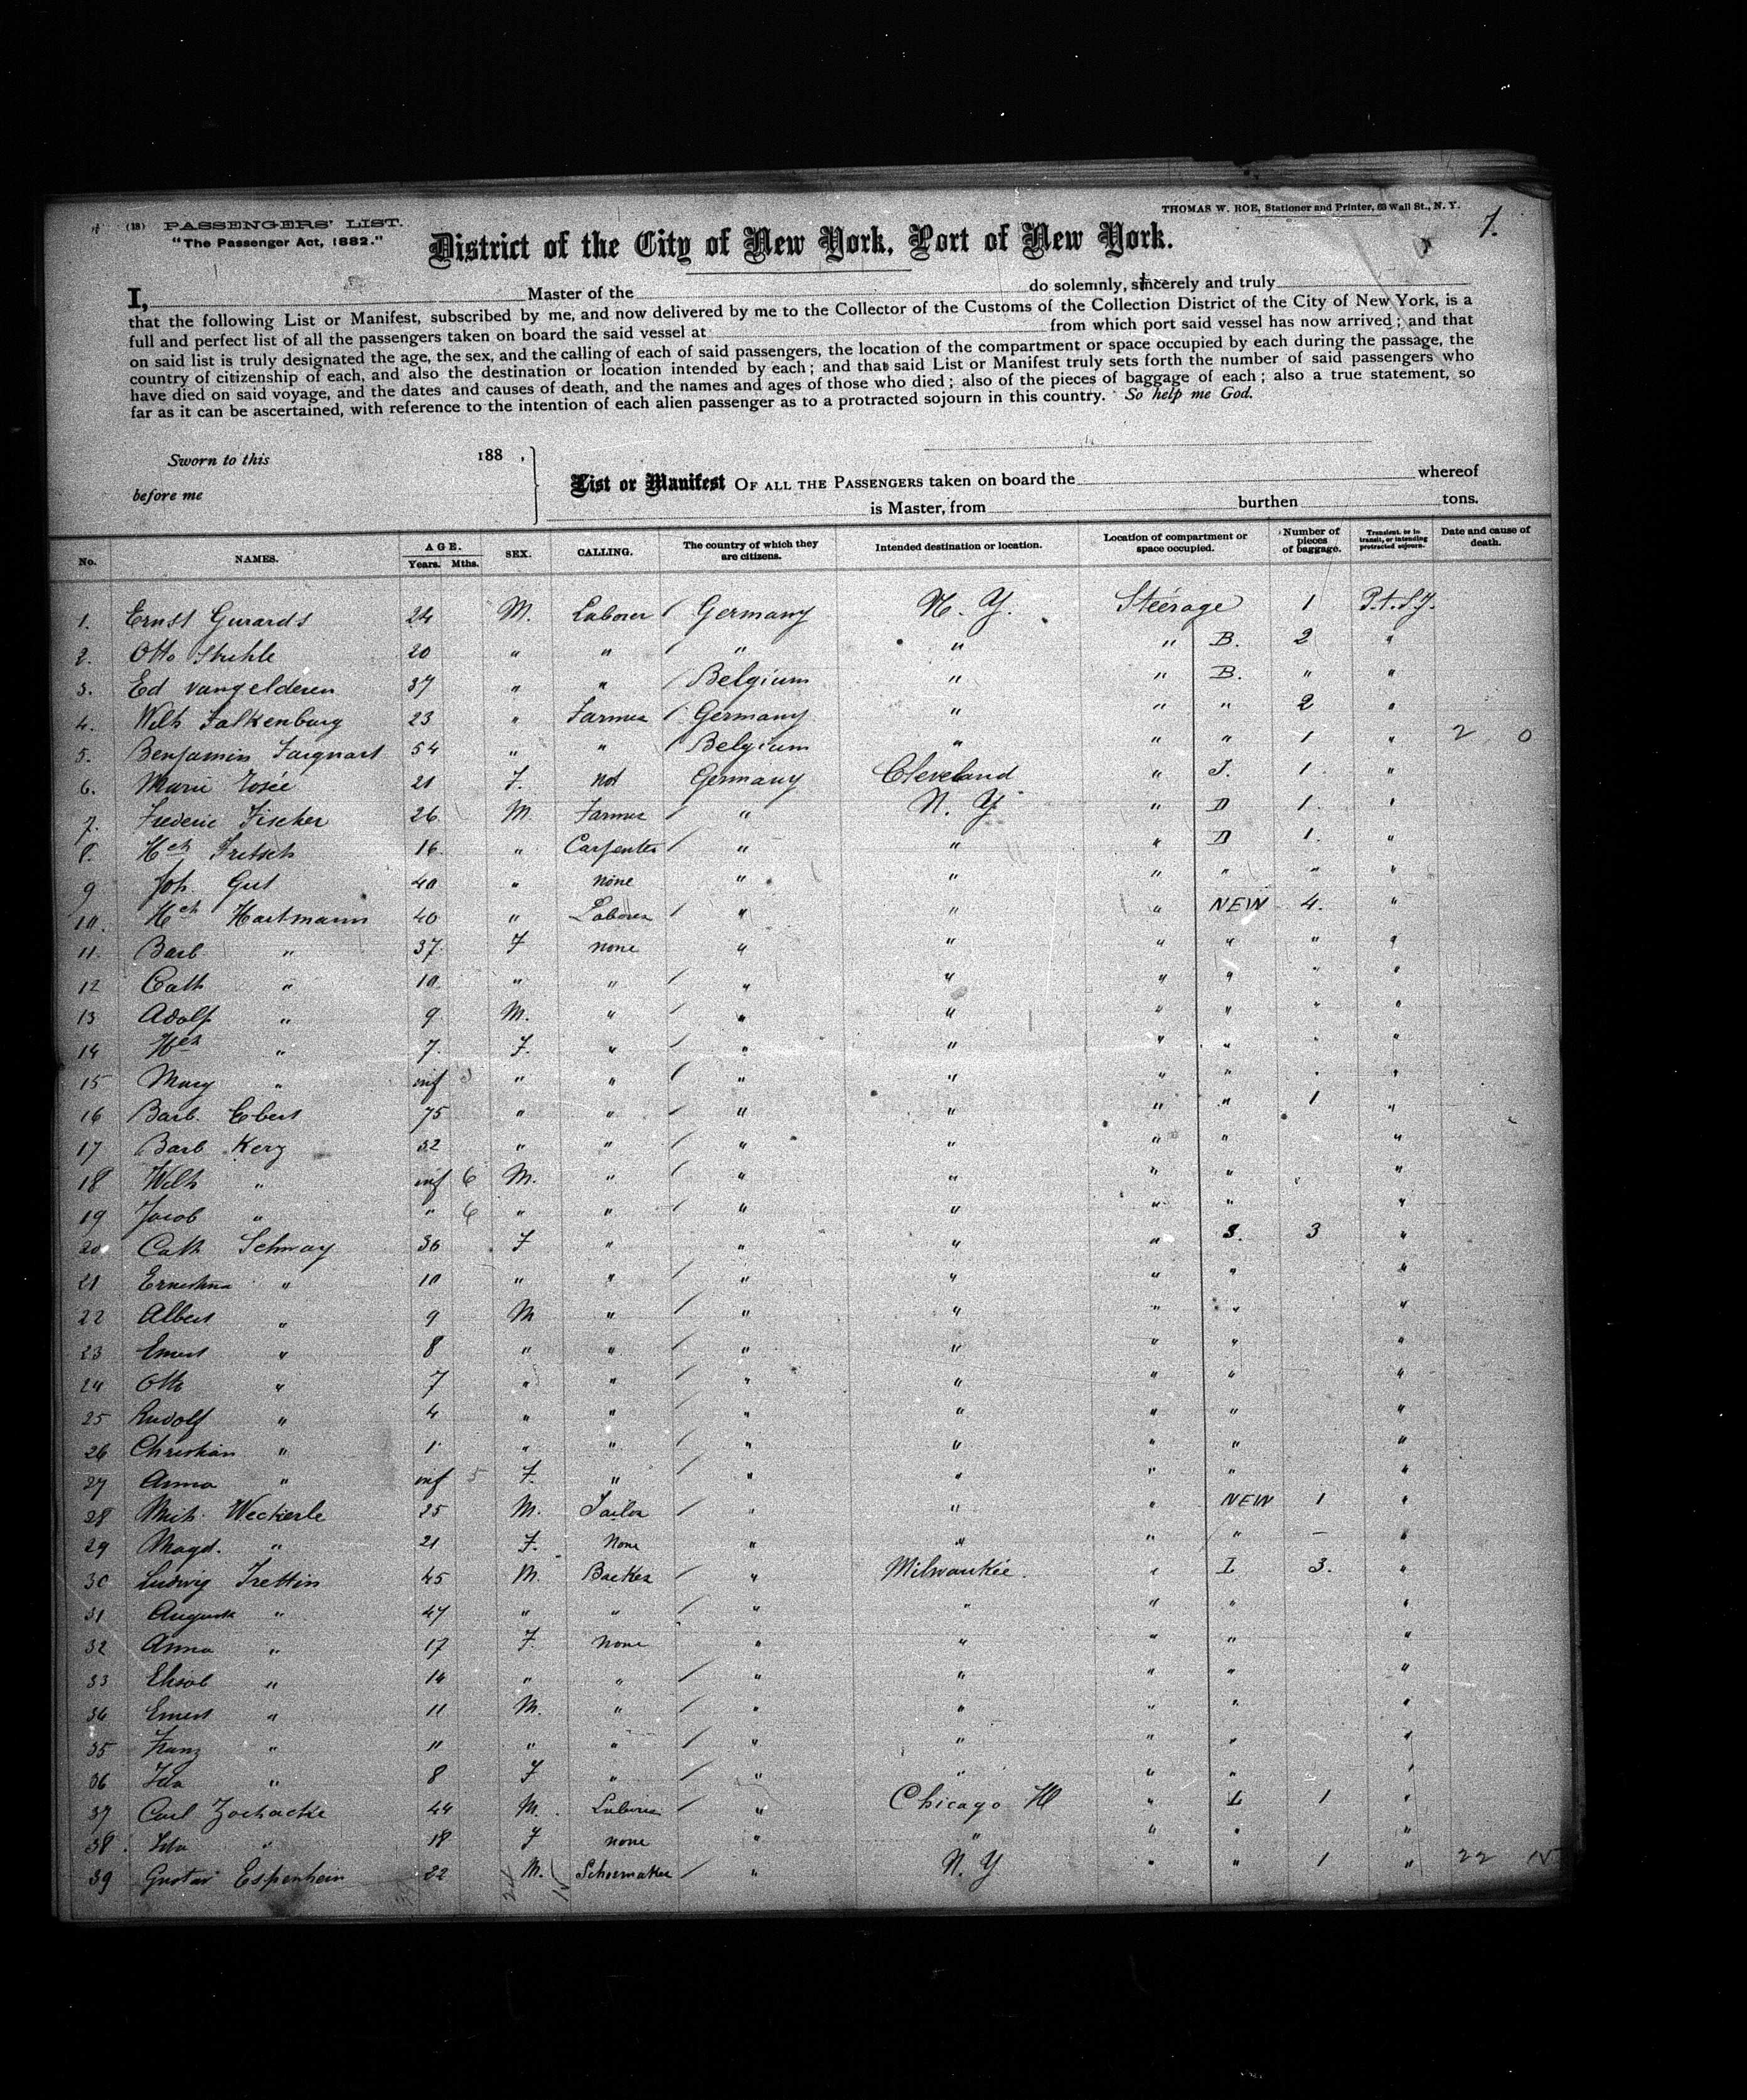 (18) PASSENGERS' LIST.
"The Passenger Act, 1882."
THOMAS W. ROE, Stationer and Printer, 63 Wall St., N. Y.
7.
District of the City of New York, Port of New York.
I, Master of the do solemnly, sincerely and truly
that the following List or Manifest, subscribed by me, and now delivered by me to the Collector of the Customs of the Collection District of the City of New York, is a
full and perfect list of all the passengers taken on board the said vessel at from which port said vessel has now arrived; and that
on said list is truly designated the age, the sex, and the calling of each of said passengers, the location of the compartment or space occupied by each during the passage, the
country of citizenship of each, and also the destination or location intended by each; and that said List or Manifest truly sets forth the number of said passengers who
have died on said voyage, and the dates and causes of death, and the names and ages of those who died; also of the pieces of baggage of each; also a true statement, so
far as it can be ascertained, with reference to the intention of each alien passenger as to a protracted sojourn in this country. So help me God.
Sworn to this 188 ,
before me
List or Manifest OF ALL THE PASSENGERS taken on board the whereof
is Master, from burthen tons.
No. NAMES. AGE. Years. Mths. SEX. CALLING. The country of which they are citizens. Intended destination or location. Location of compartment or space occupied. Number of pieces of baggage. Transient, or in transit, or intending protracted sojourn. Date and cause of death.
1. Ernst Gerards 24 M. Laborer Germany N. Y. Steerage 1 P.t.S.J.
2. Otto Struhle 20 " " " " " B. 2 "
3. Ed vangelderen 37 " " Belgium " " B. " "
4. Wilh Falkenburg 23 " Farmer Germany " " " 2 "
5. Benjamin Farquart 54 " " Belgium " " " 1 " 2 0
6. Marie Rosée 21 F. not Germany Cleveland " J. 1 "
7. Frederic Fischer 26 M. Farmer " N. Y " D 1. "
8. Hch Fritsch 16 " Carpenter " " " D 1. "
9 Joh. Gut 40 " none " " " " " "
10. Hch Hartmann 40 " Laborer " " " NEW 4. "
11. Barb " 37. F none " " " " " "
12 Cath " 10 " " " " " " " "
13 Adolf " 9 M. " " " " " " "
14 Hch " 7. F. " " " " " " "
15 Mary " inf 3 " " " " " " " "
16 Barb. Ebert 75 " " " " " " 1 "
17 Barb Kerz 32 " " " " " " "
18 Wilh " inf 6 M. " " " " " "
19 Jacob " " 6 " " " " " " "
20 Cath Schway 36 F " " " " S. 3 "
21 Ernestina " 10 " " " " " " "
22 Albert " 9 M " " " " " "
23 Ernest " 8 " " " " " " "
24 Otto " 7 " " " " " " "
25 Rudolf " 4 " " " " " " "
26 Christian " 1 " " " " " " "
27 Anna " inf 5 F. " " " " " "
28 Mich. Weckerle 25 M. Tailor " " " NEW 1 "
29 Magd. " 21 F. None " " " " – "
30 Ludwig Trettin 45 M. Backer " Milwaukie. " I 3. "
31 August " 47 " " " " " " "
32 Anna " 17 F. none " " " " "
33 Elisab " 14 " " " " " " "
34 Ernest " 11 M. " " " " " "
35 Franz " " " " " " " " "
36 Ida " 8 F " " " " " "
37 Carl Zochacke 44 M. Laborer " Chicago Ill " I 1 "
38. Ida " 18 F none " " " " "
39 Gustav Espenhein 22 M. Schoemaker " N. Y " " 1 " 22 15